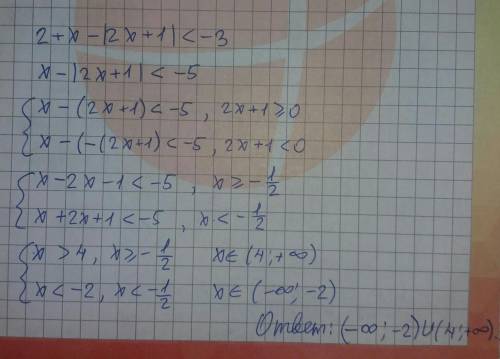 2+x-|2x+1|<-3
x-|2x+1|<-5
{ x-(2x+1)<-5, 2x+1≥0
x-(-(2x+1)<-5, 2x+1<0
{ x-2x-1<-5, x≥-1/2
x+2x+1<-5, x<-1/2
{ x>4, x≥-1/2 x∈(4;+∞)
x<-2, x<-1/2 x∈(-∞;-2)
Ответ: (-∞;-2)U(4;+∞).